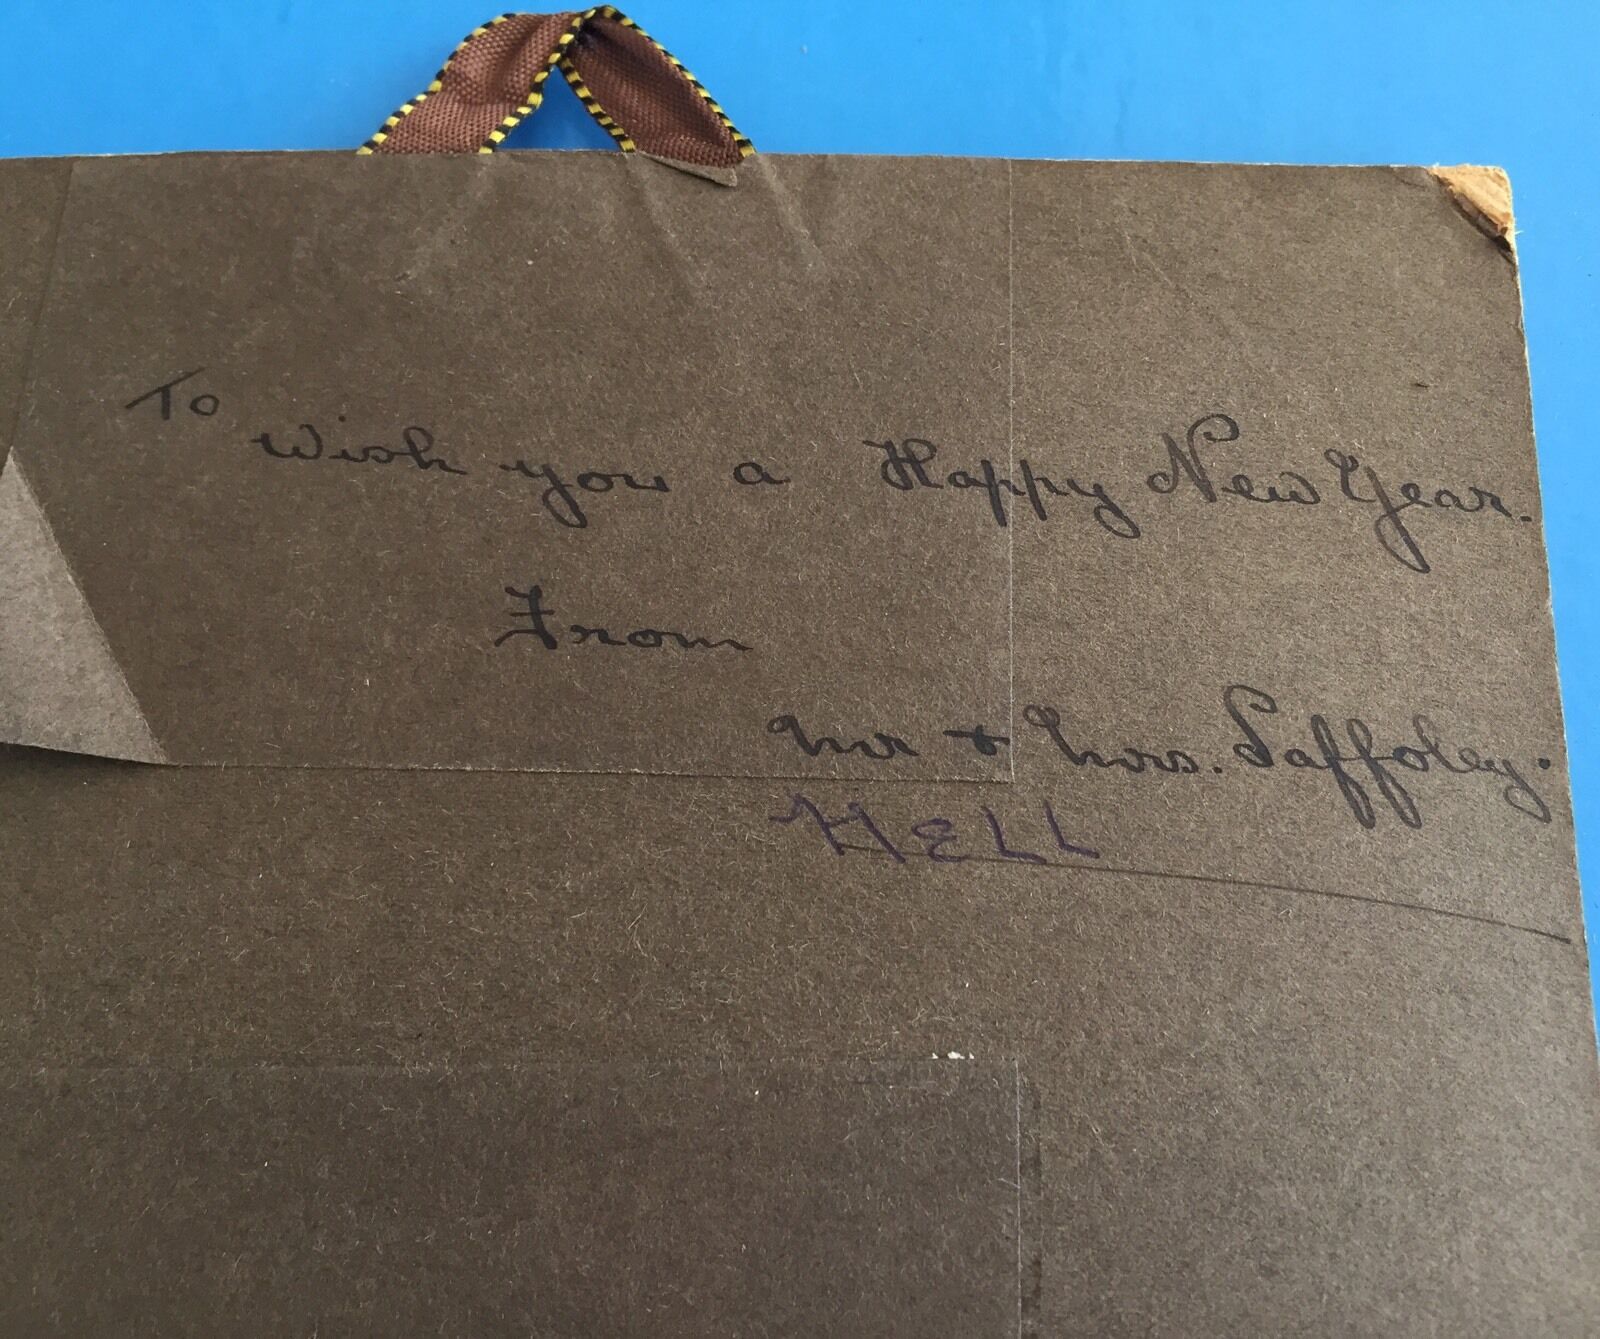 To
Wish you a Happy New Year.
From
Mr & Mrs. Saffoley.
HELL